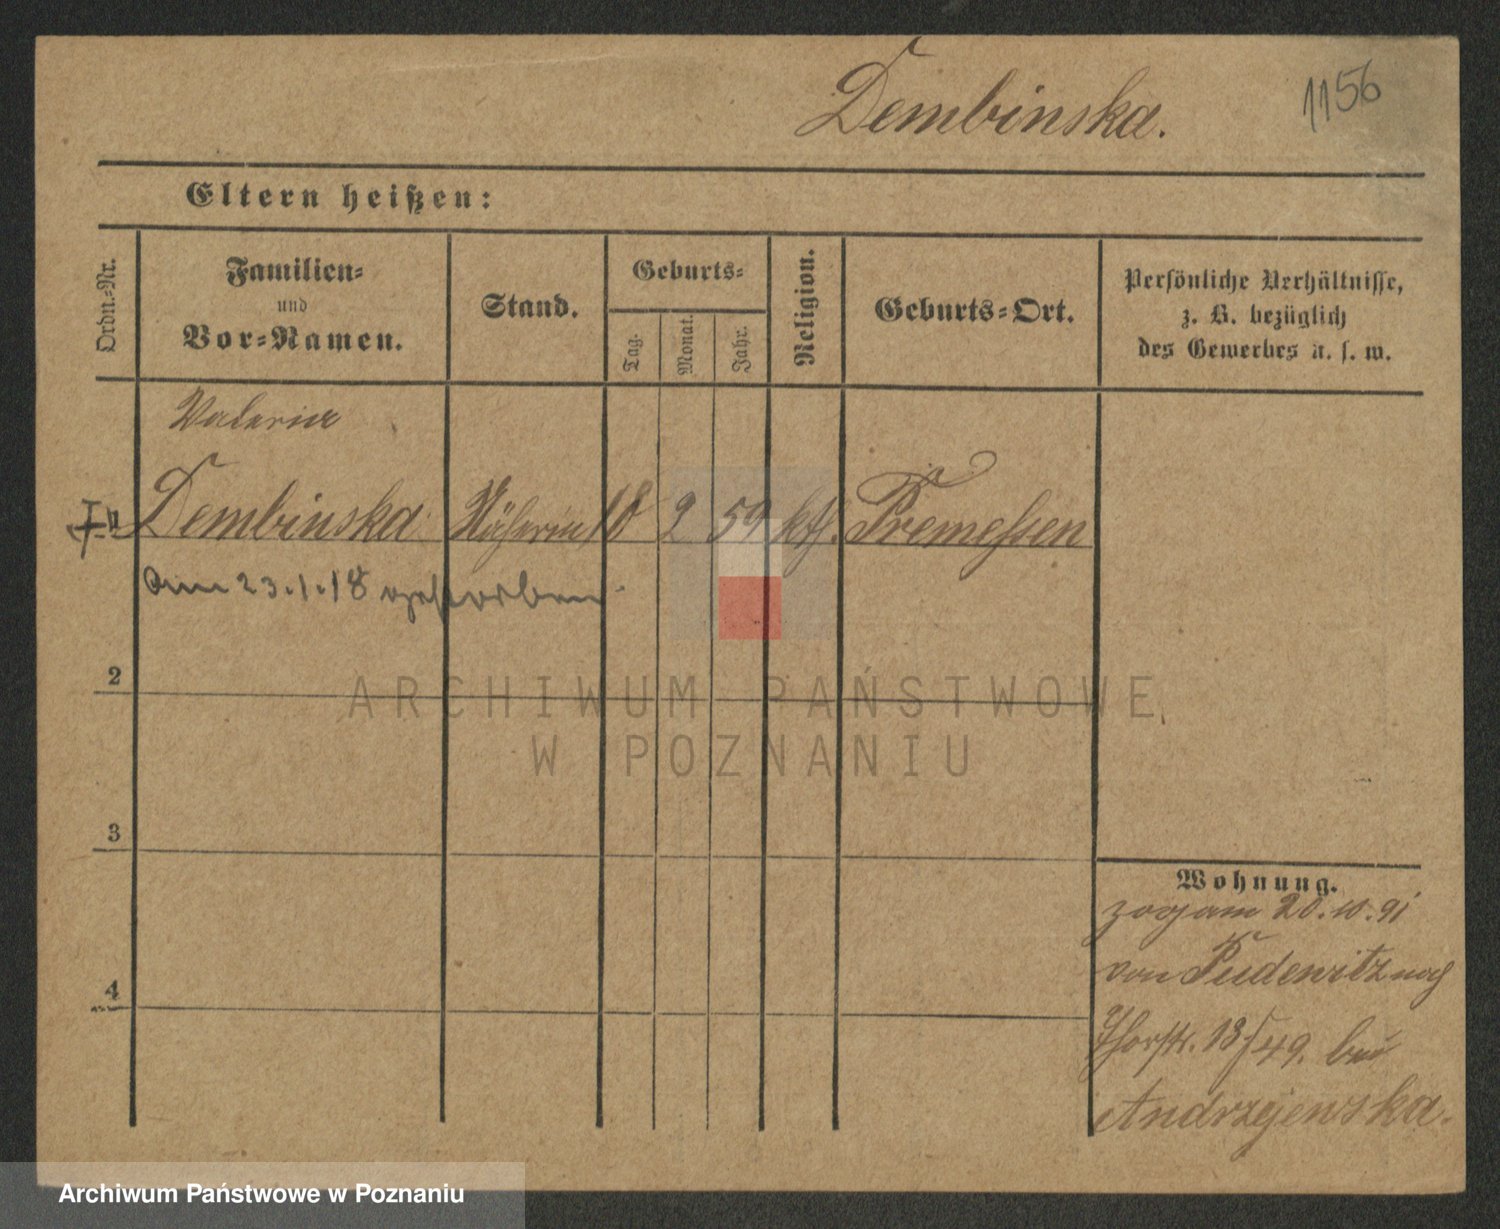 Dembinska.
1156
Eltern heißen:
Ordn.-Nr.
Familien-
und
Vor-Namen.
Stand.
Geburts-
Tag.
Monat.
Jahr.
Religion.
Geburts-Ort.
Persönliche Verhältnisse,
z. B. bezüglich
des Gewerbes u. s. w.
Valeria
Dembinska Näherin 18 2 59 kth. Tremessen
am 23.1.18 gestorben
2
3
4
Wohnung.
zog am 20.10.91
von Pudewitz nach
Thorstr. 13/49. bei
Andrzejewska.
ARCHIWUM PAŃSTWOWE
W POZNANIU
Archiwum Państwowe w Poznaniu